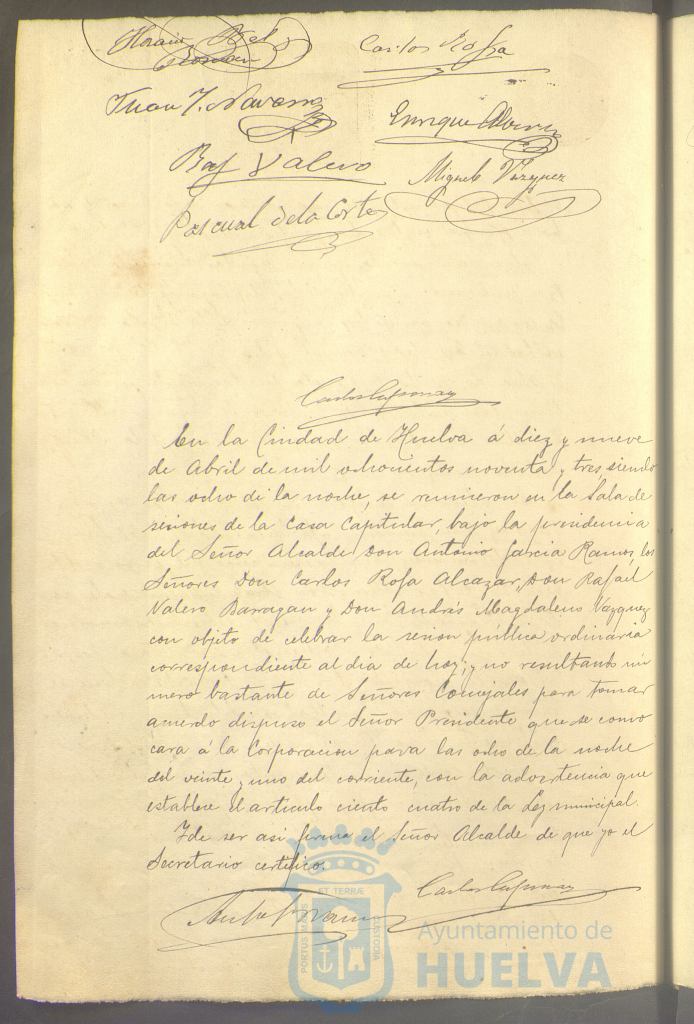 Horacio Bel
Roman
Carlos Rofa
Juan J. Navarro
Enrique
Raf Valero
Miguel Vazquez
Pascual de la Corte
Carlos
En la Ciudad de Huelva á diez y nueve
de Abril de mil ochocientos noventa y tres siendo
las ocho de la noche, se reunieron en la Sala de
sesiones de la Casa Capitular, bajo la presidencia
del Señor Alcalde Don Antonio Garcia Ramos, los
Señores Don Carlos Rofa Alcazar, Don Rafáel
Valero Barragan y Don Andrés Magdaleno Vazquez
con objeto de celebrar la sesion pública ordinaria
correspondiente al dia de hoy; y no resultando nú
mero bastante de Señores Concejales para tomar
acuerdo dispuso el Señor Presidente que se convo
cara á la Corporacion para las ocho de la noche
del veinte y uno del corriente, con la advertencia que
establece el articulo ciento cuatro de la Ley municipal.
Y de ser asi firma el Señor Alcalde de que yo el
Secretario certifico.
Carlos
PORTUS MARIS ET TERRÆ CUSTODIA
Ayuntamiento de
HUELVA